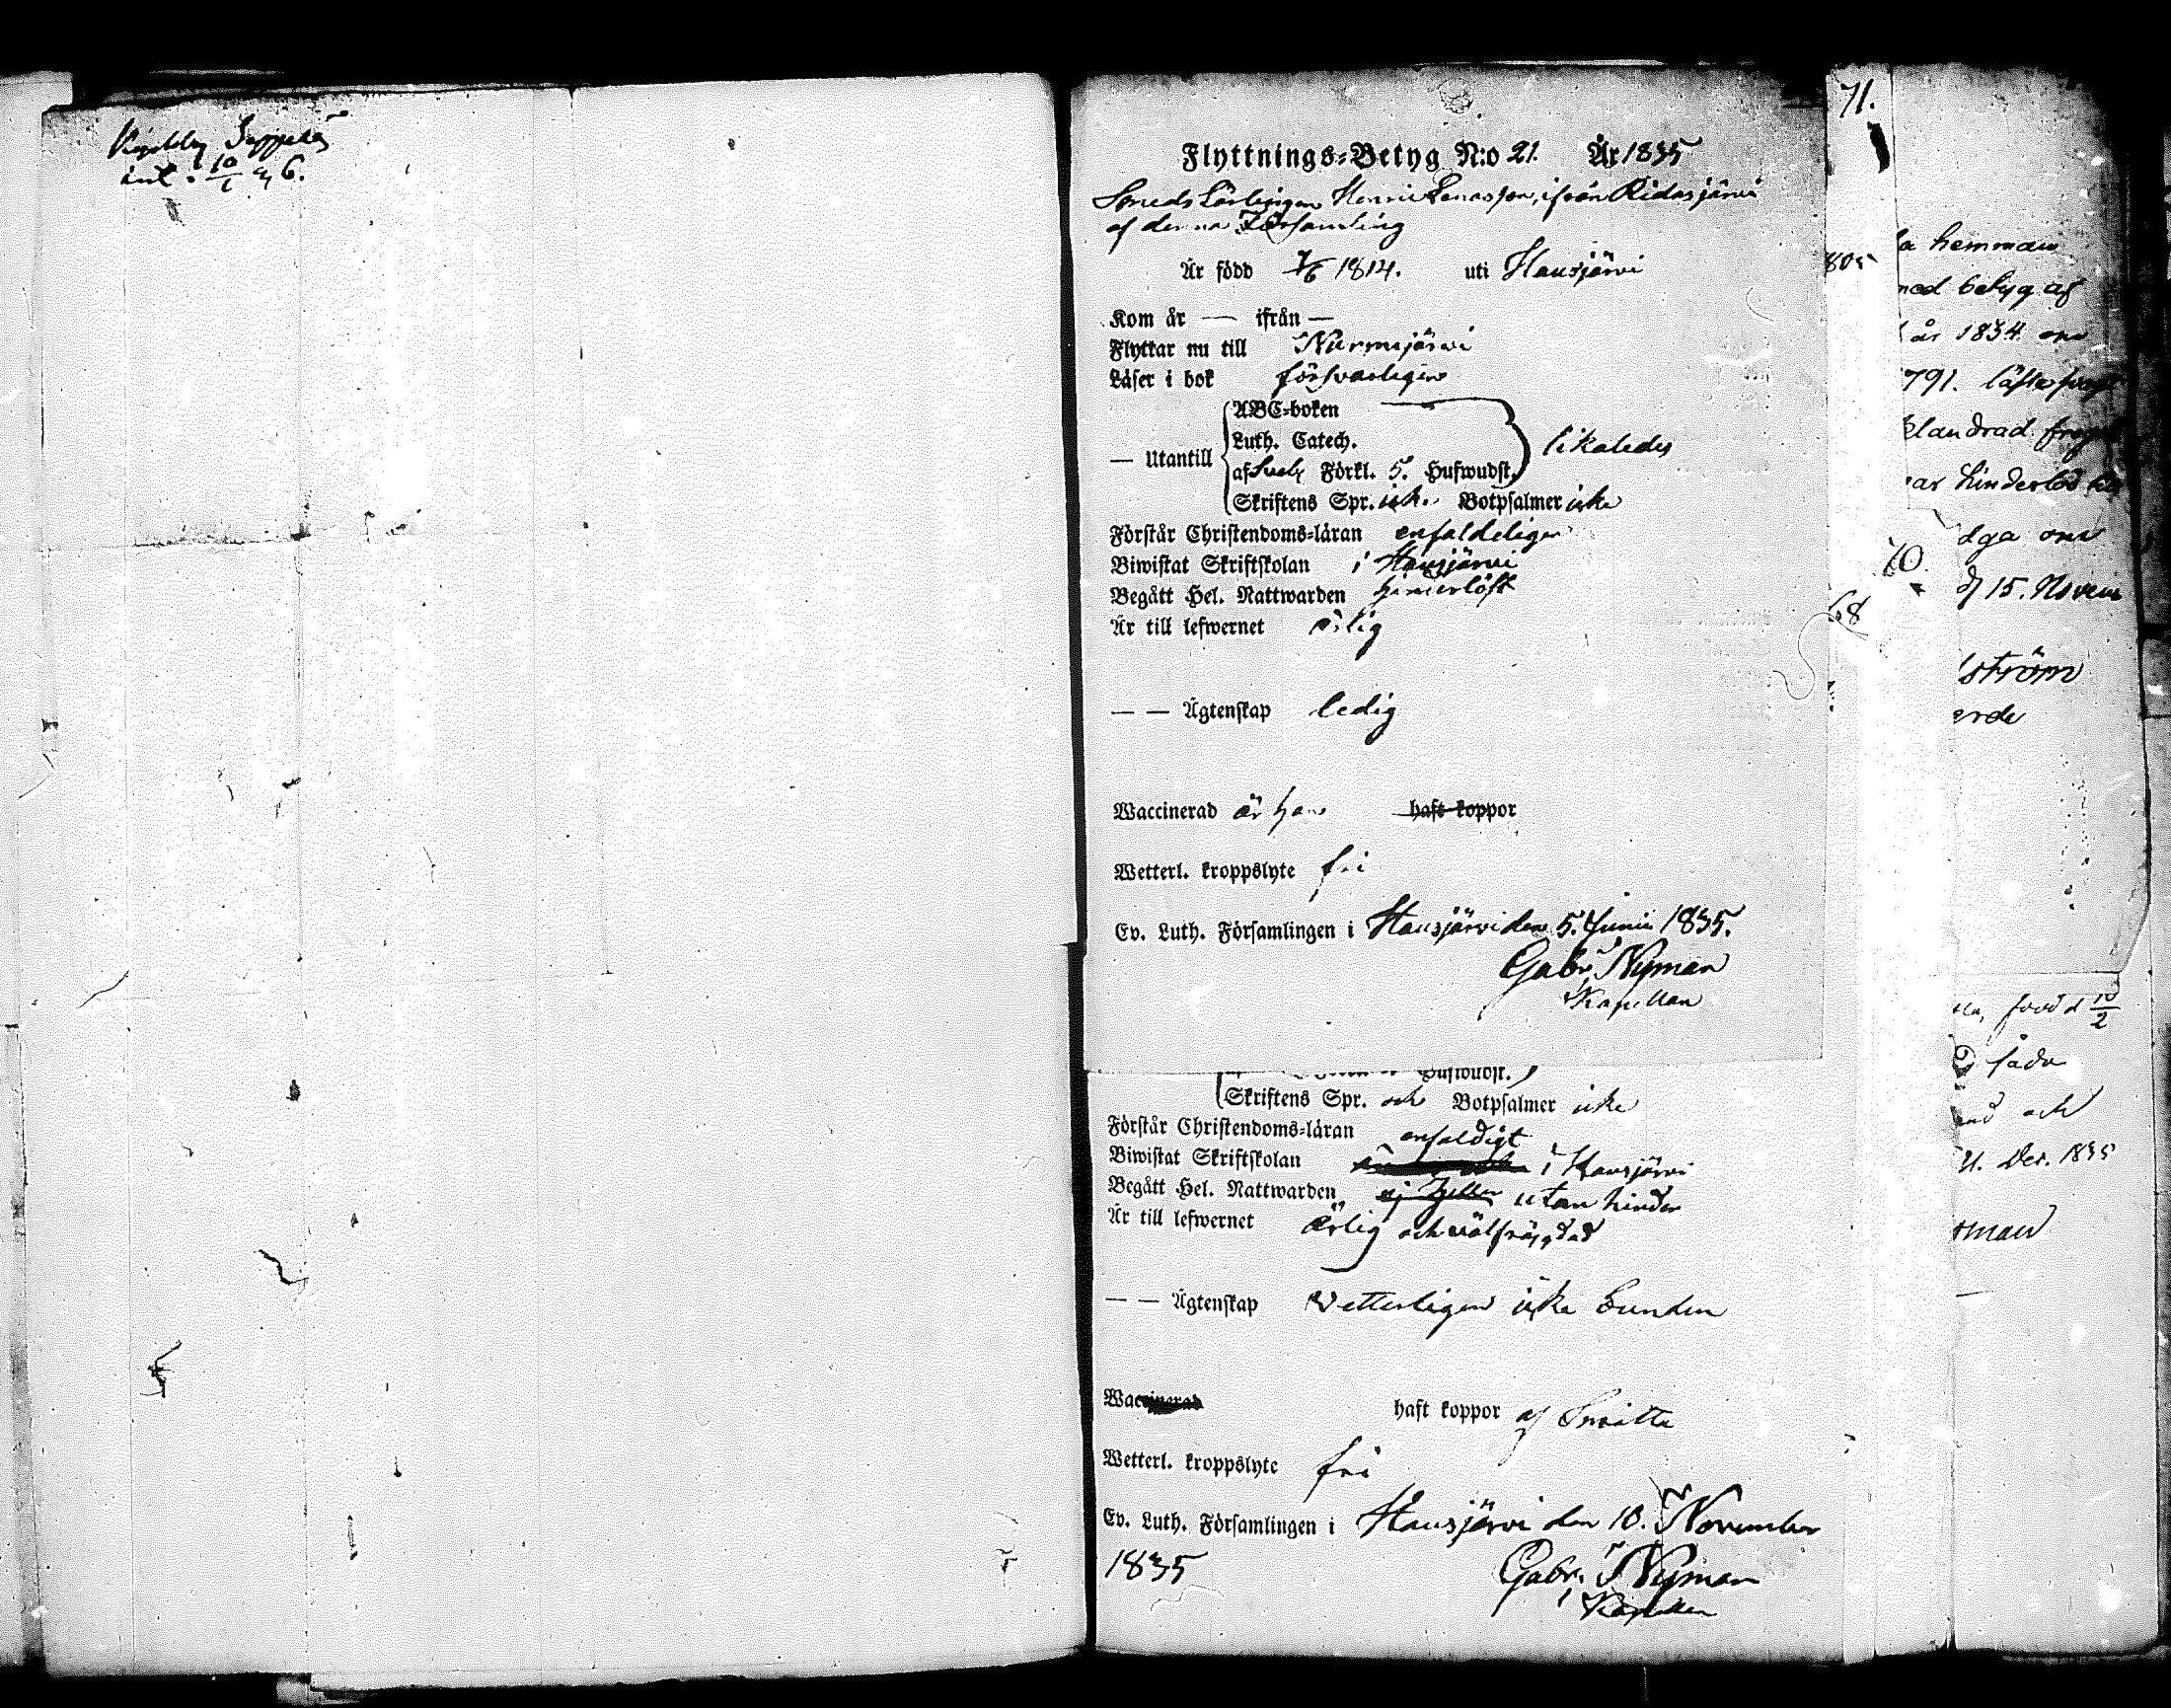 int. 10/1 36.
71.
Flyttnings-Betyg N:o 21. År 1835
Smeds Lärlingen Henric Henasson, ifrån Ridasjärvi
af denna Församling
Är född 7/6 1814. uti Hausjärvi
Kom år — ifrån —
Flyttar nu till Nurmijärvi
Läser i bok försvarligen
— Utantill
ABC-boken
Luth. Catech.
af Sveb. Förkl. 5. Hufwudst.
likaledes
Skriftens Spr. icke Botpsalmer icke
Förstår Christendoms-läran enfaldeligen
Biwistat Skriftskolan i Hausjärvi
Begått Hel. Nattwarden hinderlöst
Är till lefwernet ärlig
— — Ägtenskap ledig
Waccinerad är han haft koppor
Wetterl. kroppslyte fri
Ev. Luth. Församlingen i Hausjärvi den 5. Junii 1835.
Gabr. Nyman
Kapellan
Hufwudst.
Skriftens Spr. och Botpsalmer icke
Förstår Christendoms-läran enfaldigt
Biwistat Skriftskolan i Hausjärvi
Begått Hel. Nattwarden ej heller utan hinder
Är till lefwernet ärlig och välfräjdad
— — Ägtenskap vetterligen icke bunden
Waccinerad haft koppor af Smitta
Wetterl. kroppslyte fri
Ev. Luth. Församlingen i Hausjärvi den 10. November
1835 Gabr. Nyman
Kapellan
805
68
70.
a hemman
med betyg af
år 1834 om
791.
ar hinderlös
dga om
d 15. Novem
ström
erde
född d 10/2
både
and och
21. Dec. 1835
man